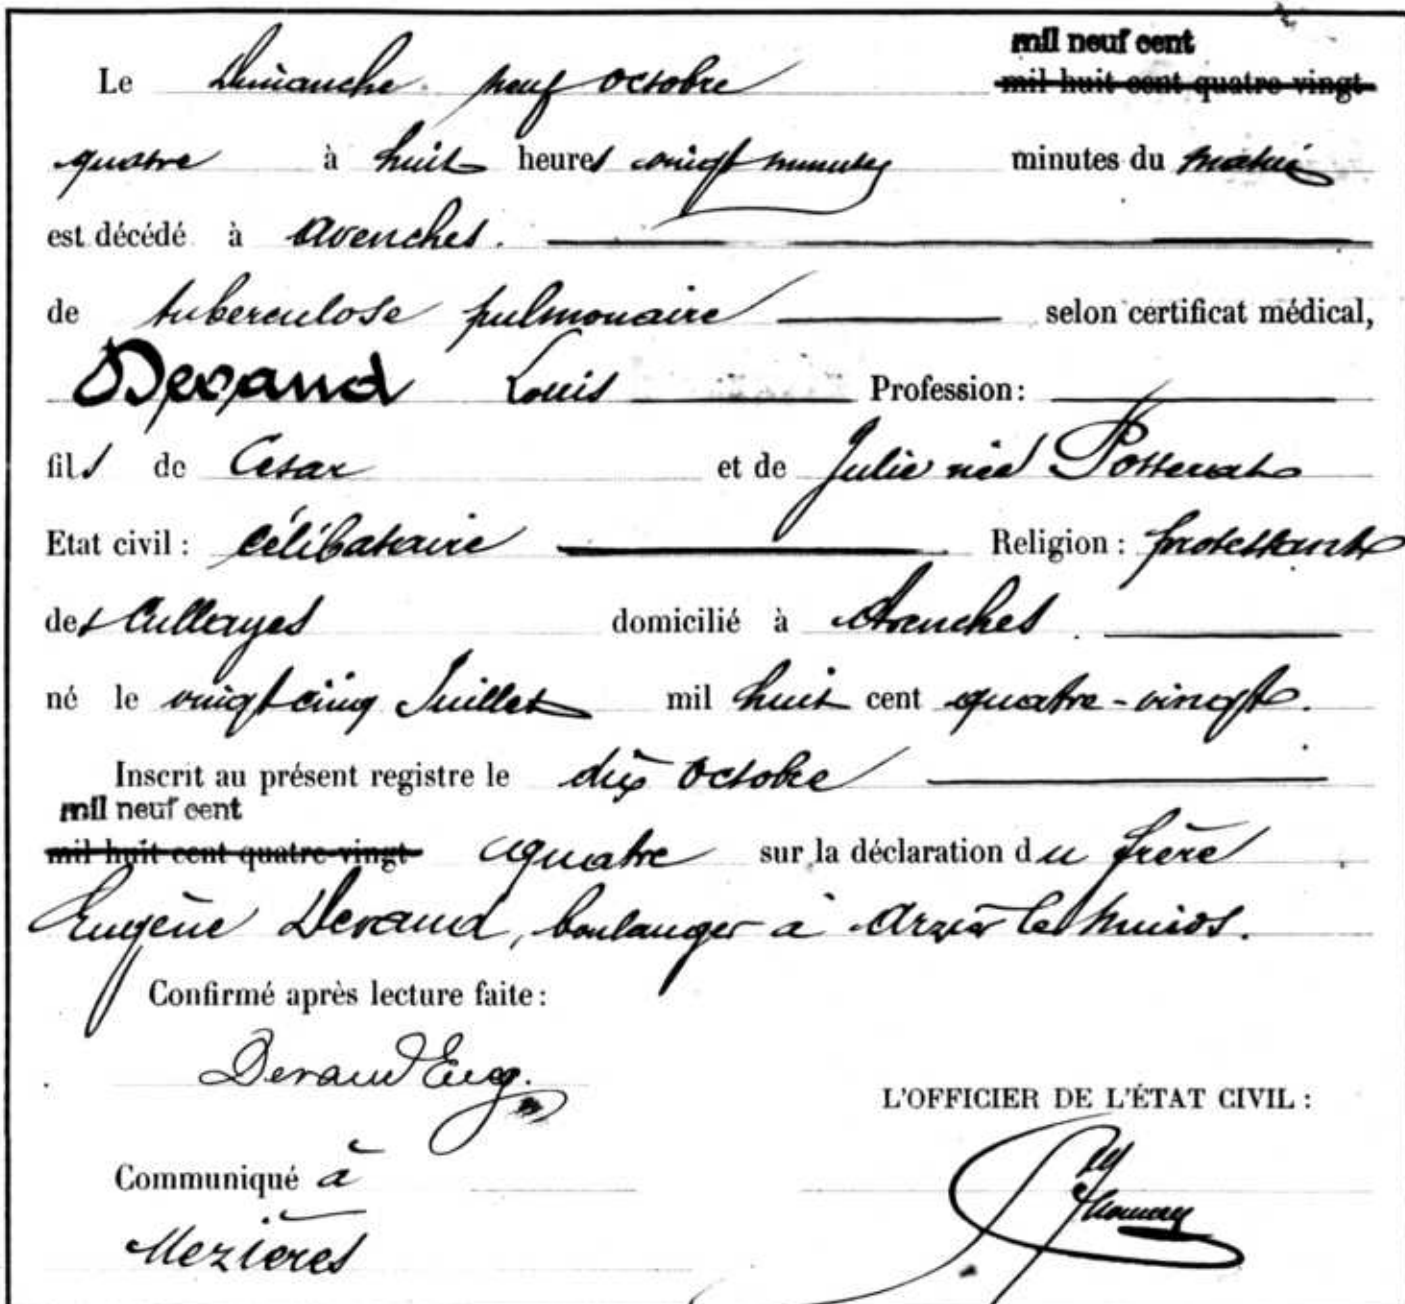 mil neuf cent
Le Dimanche neuf octobre mil huit cent quatre-vingt
quatre à huit heures vingt minutes minutes du matin
est décédé à Avenches.
de tuberculose pulmonaire selon certificat médical,
Devaud Louis Profession:
fils de César et de Julie née
Etat civil: célibataire Religion: protestante
des Cullayes domicilié à Avenches
né le vingt cinq Juillet mil huit cent quatre-vingt.
Inscrit au présent registre le dix octobre
mil neuf cent
mil huit cent quatre-vingt quatre sur la déclaration du frère
Eugène Devaud, boulanger à Arzier le Muids.
Confirmé après lecture faite:
Devaud Eug.
L'OFFICIER DE L'ÉTAT CIVIL:
Communiqué à
Mezières